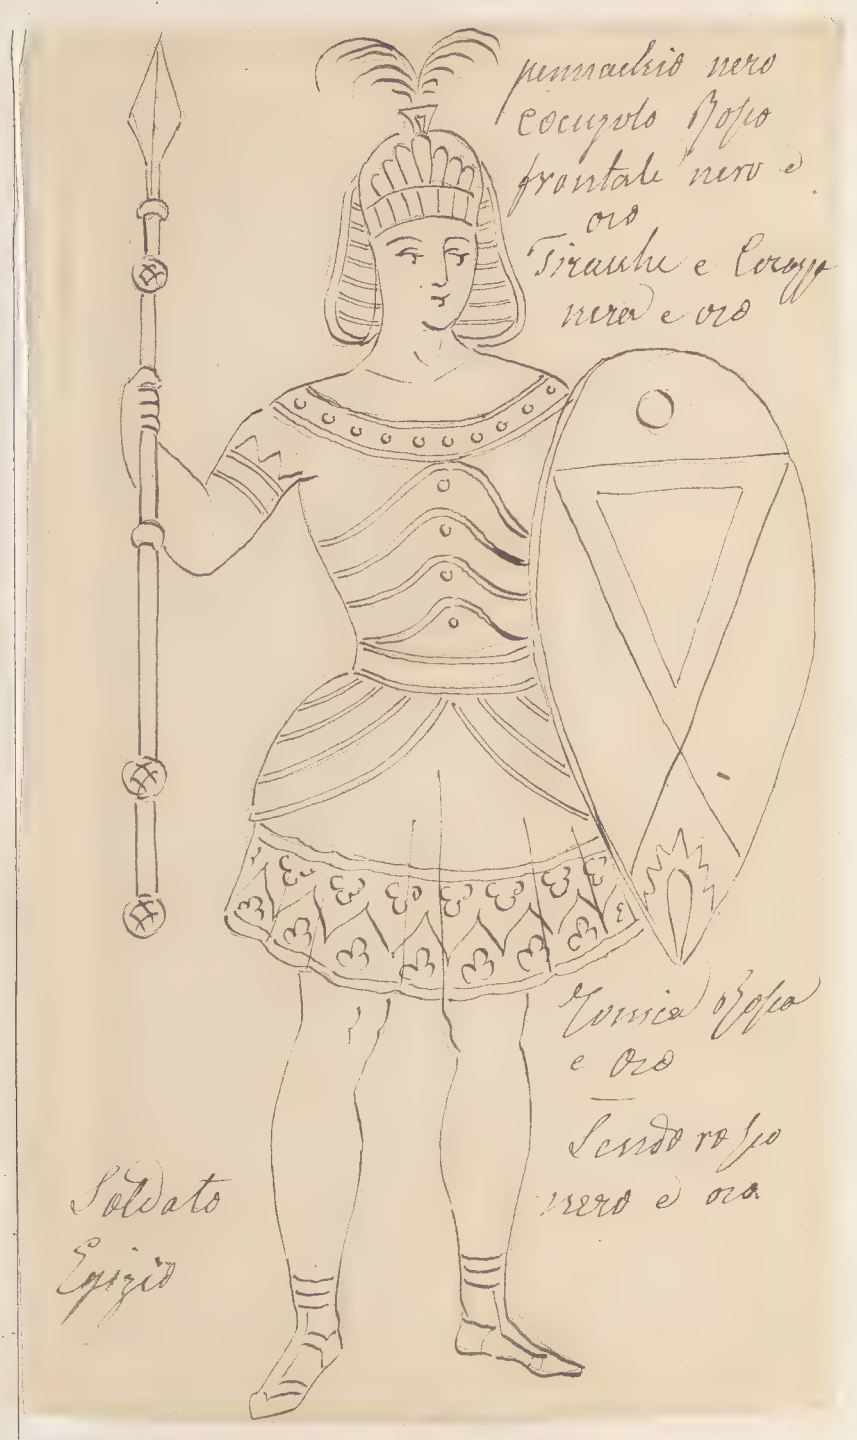 pennachio nero
Cocupolo Rosso
frontale nero e
oro
Tirache e Corazza
nera e oro
Tonica Rossa
e Oro
Scudo rosso
nero e oro
Soldato
Egizio